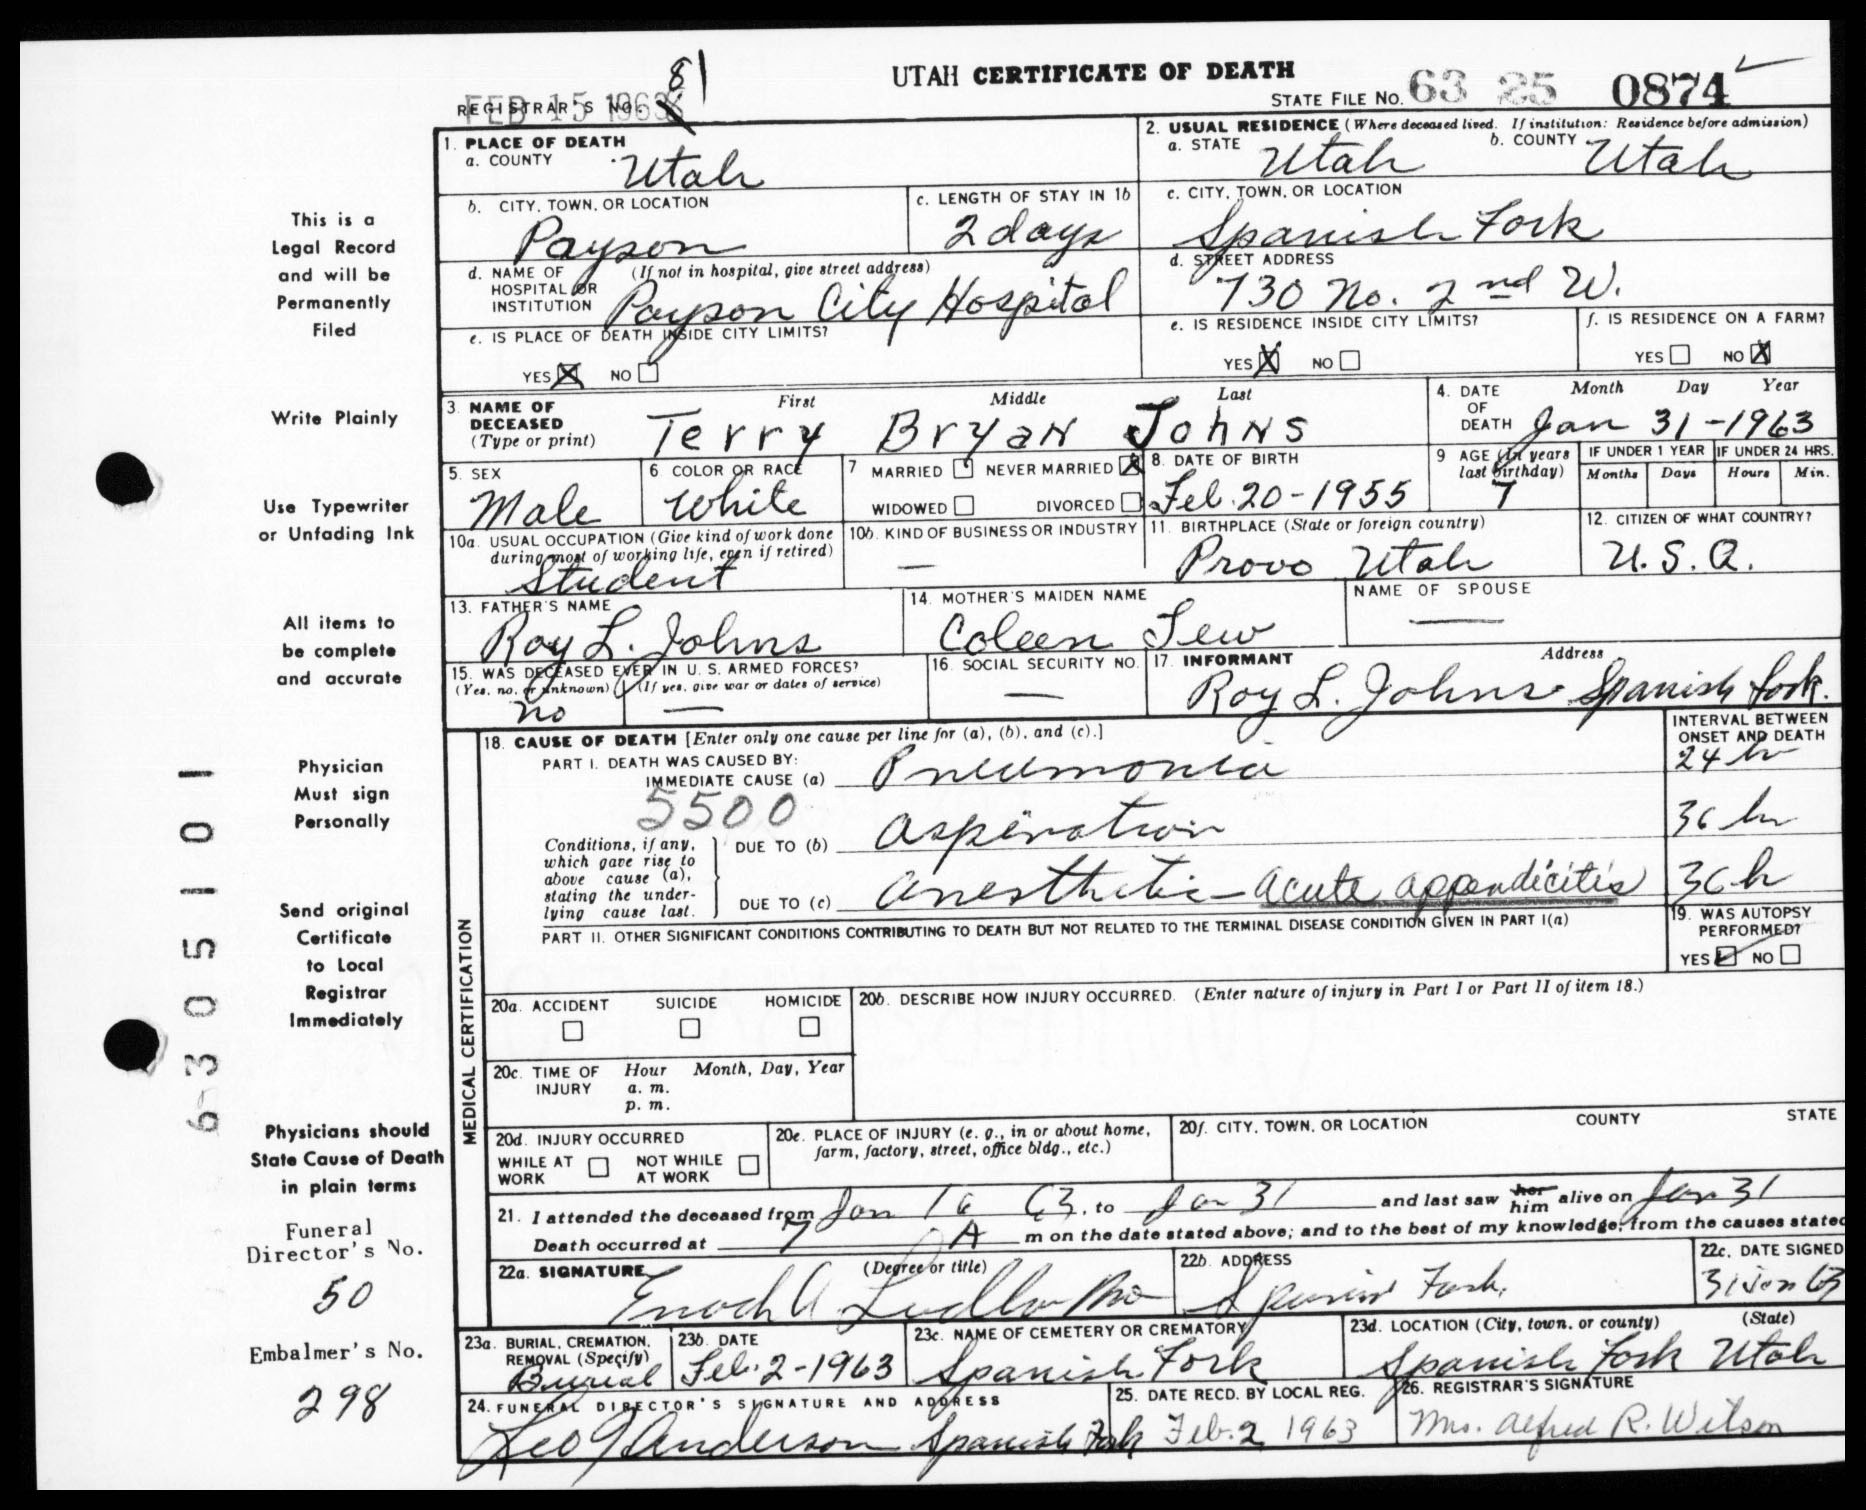 UTAH CERTIFICATE OF DEATH
FEB 15 1963
REGISTRAR'S NO. 81
STATE FILE NO. 63 25 0874
1. PLACE OF DEATH
a. COUNTY Utah
2. USUAL RESIDENCE (Where deceased lived. If institution: Residence before admission)
a. STATE Utah b. COUNTY Utah
b. CITY, TOWN, OR LOCATION Payson
c. LENGTH OF STAY IN 1b 2 days
c. CITY, TOWN, OR LOCATION Spanish Fork
d. NAME OF HOSPITAL OR INSTITUTION (If not in hospital, give street address) Payson City Hospital
d. STREET ADDRESS 730 No. 2nd W.
e. IS PLACE OF DEATH INSIDE CITY LIMITS?
YES X NO
e. IS RESIDENCE INSIDE CITY LIMITS?
YES X NO
f. IS RESIDENCE ON A FARM?
YES NO X
3. NAME OF DECEASED (Type or print)
First Middle Last
Terry Bryan Johns
4. DATE OF DEATH Month Day Year
Jan 31-1963
5. SEX Male
6 COLOR OR RACE White
7 MARRIED NEVER MARRIED X
WIDOWED DIVORCED
8. DATE OF BIRTH Feb. 20-1955
9 AGE (In years last birthday) 7
IF UNDER 1 YEAR Months Days
IF UNDER 24 HRS. Hours Min.
10a. USUAL OCCUPATION (Give kind of work done during most of working life, even if retired) Student
10b. KIND OF BUSINESS OR INDUSTRY —
11. BIRTHPLACE (State or foreign country) Provo Utah
12. CITIZEN OF WHAT COUNTRY? U.S.A.
13. FATHER'S NAME Roy L. Johns
14. MOTHER'S MAIDEN NAME Coleen Tew
NAME OF SPOUSE —
15. WAS DECEASED EVER IN U. S. ARMED FORCES?
(Yes, no, or unknown) (If yes, give war or dates of service)
no —
16. SOCIAL SECURITY NO. —
17. INFORMANT Address
Roy L. Johns Spanish Fork.
18. CAUSE OF DEATH [Enter only one cause per line for (a), (b), and (c).]
INTERVAL BETWEEN ONSET AND DEATH
PART I. DEATH WAS CAUSED BY:
IMMEDIATE CAUSE (a) Pneumonia 24 hr
5500
Conditions, if any, which gave rise to above cause (a), stating the underlying cause last.
DUE TO (b) Aspiration 36 hr
DUE TO (c) Anesthetic - Acute appendicitis 36 h
PART II. OTHER SIGNIFICANT CONDITIONS CONTRIBUTING TO DEATH BUT NOT RELATED TO THE TERMINAL DISEASE CONDITION GIVEN IN PART I(a)
19. WAS AUTOPSY PERFORMED?
YES NO
MEDICAL CERTIFICATION
20a. ACCIDENT SUICIDE HOMICIDE
20b. DESCRIBE HOW INJURY OCCURRED. (Enter nature of injury in Part I or Part II of item 18.)
20c. TIME OF INJURY Hour Month, Day, Year
a. m.
p. m.
20d. INJURY OCCURRED
WHILE AT WORK NOT WHILE AT WORK
20e. PLACE OF INJURY (e. g., in or about home, farm, factory, street, office bldg., etc.)
20f. CITY, TOWN, OR LOCATION COUNTY STATE
21. I attended the deceased from Jan 16 63, to Jan 31 and last saw her him alive on Jan 31
Death occurred at 7 A m on the date stated above; and to the best of my knowledge, from the causes stated
22a. SIGNATURE (Degree or title)
Enoch A Ludlow MD
22b. ADDRESS Spanish Fork.
22c. DATE SIGNED 31 Jan 63
23a. BURIAL, CREMATION, REMOVAL (Specify) Burial
23b. DATE Feb. 2-1963
23c. NAME OF CEMETERY OR CREMATORY Spanish Fork
23d. LOCATION (City, town, or county) (State)
Spanish Fork Utah
24. FUNERAL DIRECTOR'S SIGNATURE AND ADDRESS
Anderson Spanish Fork
25. DATE RECD. BY LOCAL REG. Feb. 2 1963
26. REGISTRAR'S SIGNATURE
Mrs. Alfred R. Wilson
This is a
Legal Record
and will be
Permanently
Filed
Write Plainly
Use Typewriter
or Unfading Ink
All items to
be complete
and accurate
Physician
Must sign
Personally
Send original
Certificate
to Local
Registrar
Immediately
Physicians should
State Cause of Death
in plain terms
Funeral
Director's No.
50
Embalmer's No.
298